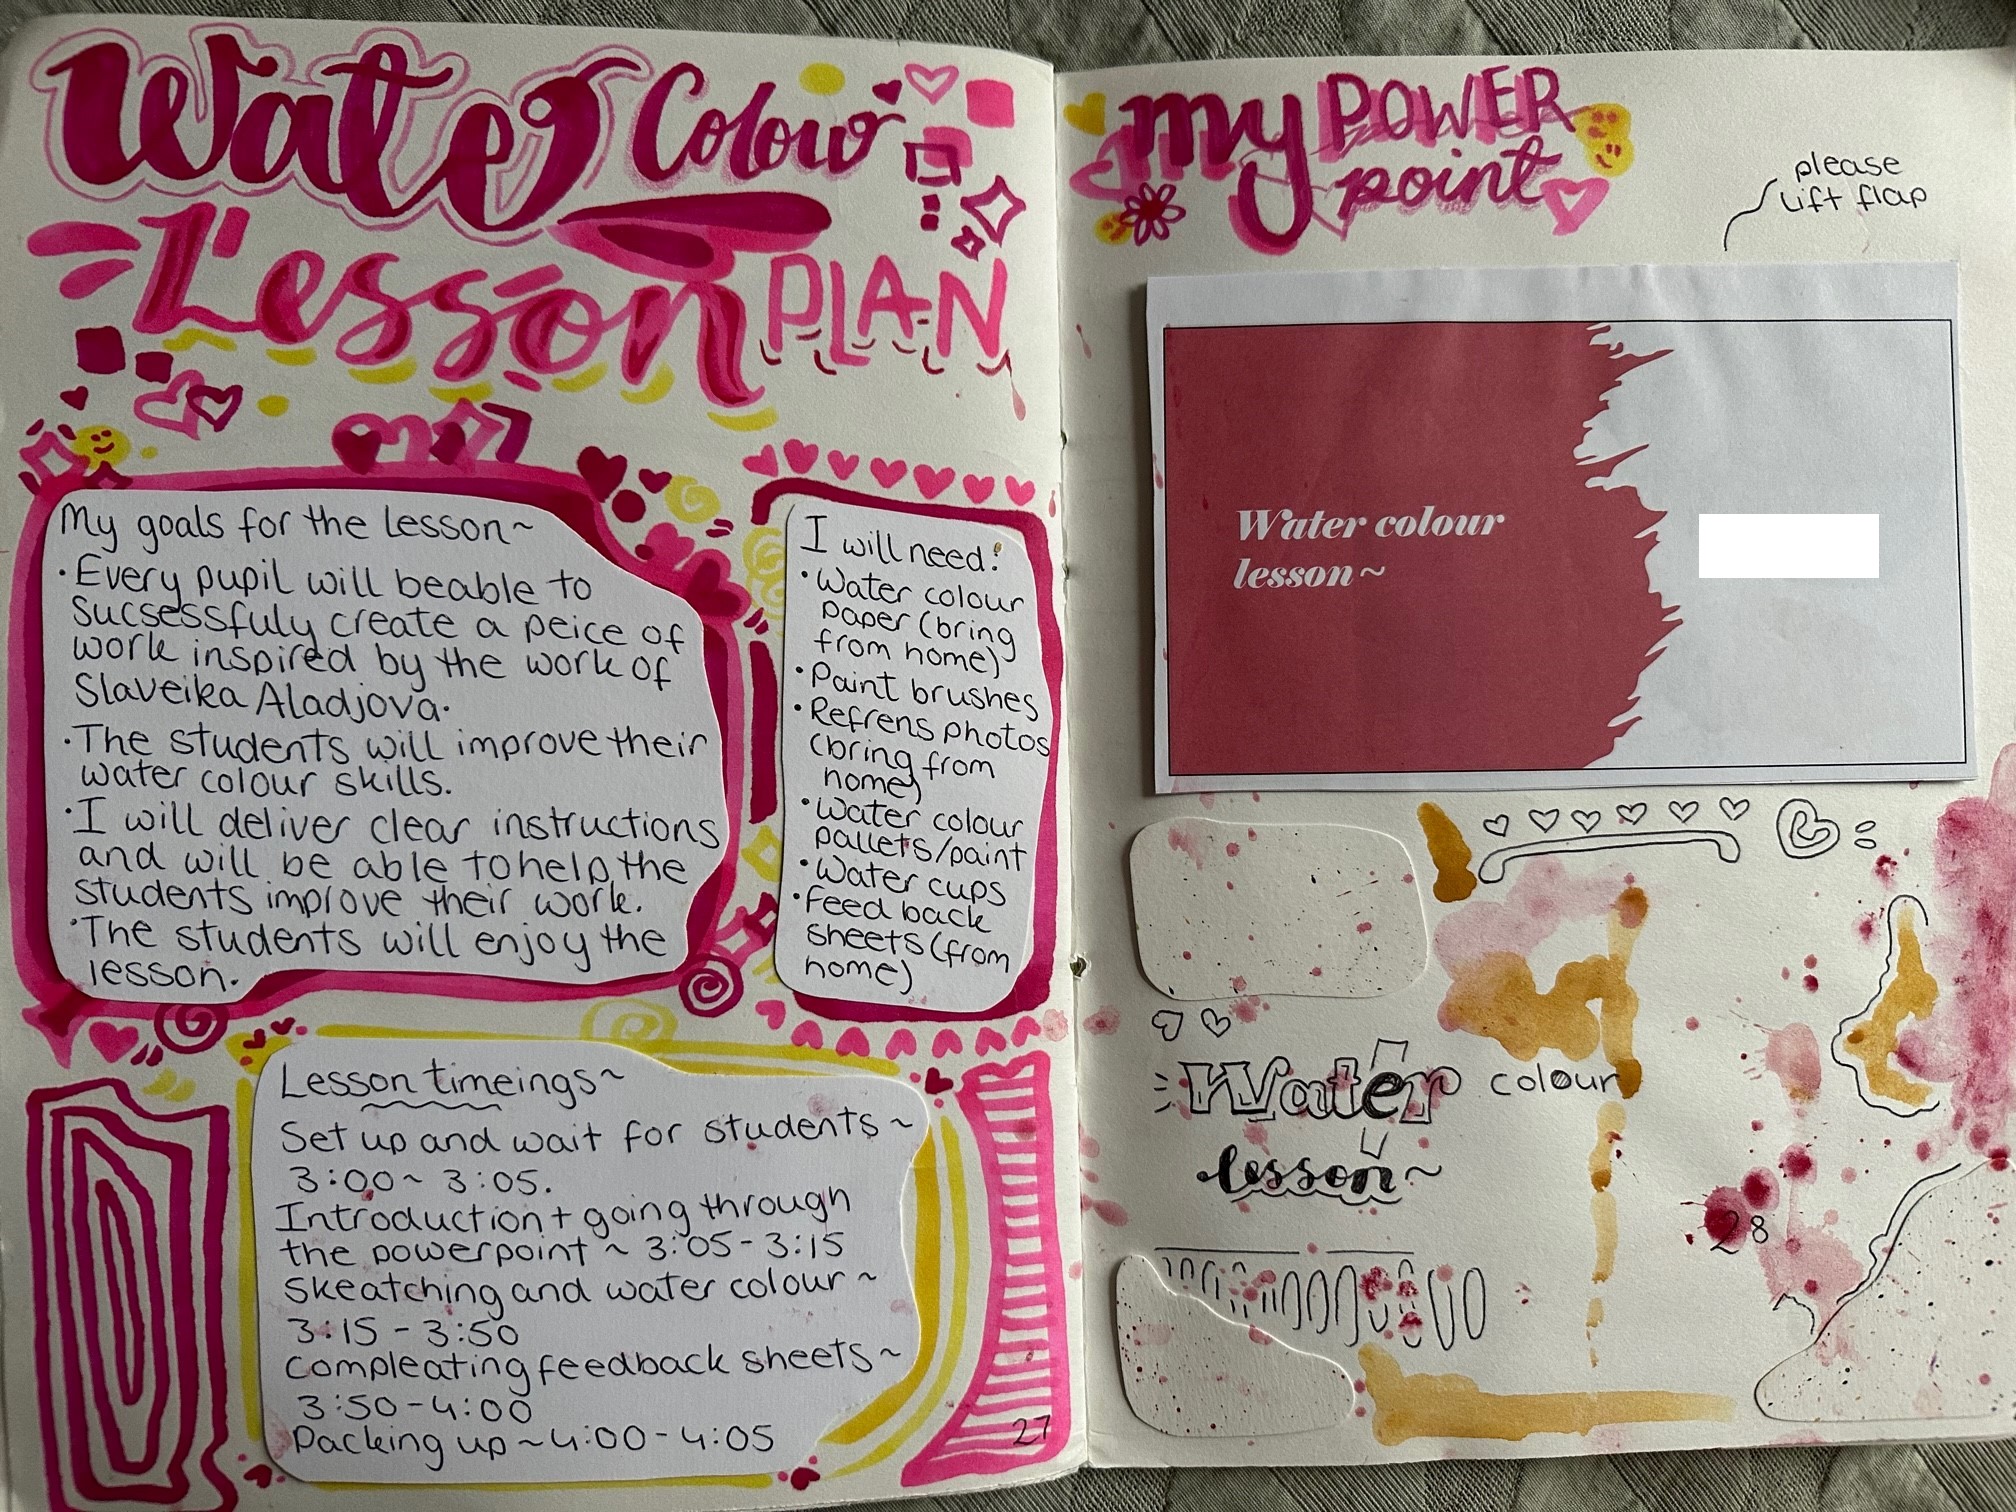 Water Colour
Lesson PLAN
My goals for the lesson~
• Every pupil will beable to
sucsessfuly create a peice of
work inspired by the work of
Slaveika Aladjova.
• The students will improve their
water colour skills.
• I will deliver clear instructions
and will be able to help the
students improve their work.
• The students will enjoy the
lesson.
I will need:
• Water colour
paper (bring
from home)
• Paint brushes
• Refrens photos
(bring from
home)
• Water colour
pallets/paint
• Water cups
• Feed back
sheets (from
home)
Lesson timeings~
Set up and wait for students~
3:00~ 3:05.
Introduction + going through
the powerpoint ~ 3:05-3:15
skeatching and water colour~
3:15-3:50
compleating feedback sheets~
3:50-4:00
Packing up~4:00-4:05
27
my POWER
point
please
lift flap
Water colour
lesson~
Water colour
lesson~
28